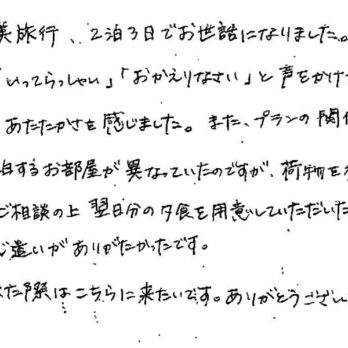 美旅行、2泊3日でお世話になりました。
「いってらっしゃい」「おかえりなさい」と声をかけ
あたたかさを感じました。また、プランの関係
泊するお部屋が異なっていたのですが、荷物を
ご相談の上 翌日分の夕食を用意していただいた
遣いがありがたかったです。
た際はこちらに来たいです。ありがとうござい